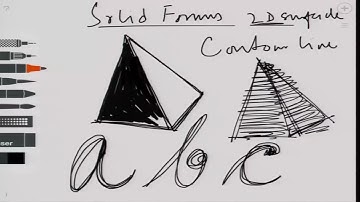 Solid Forms 2D surface
Contour line
a b c
ser